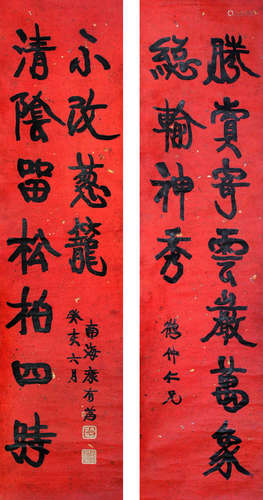 勝賞寄雲巖萬象
總輪神秀
鶴仲仁兄
清陰留松柏四時
不改蔥籠
癸亥六月
南海康有為